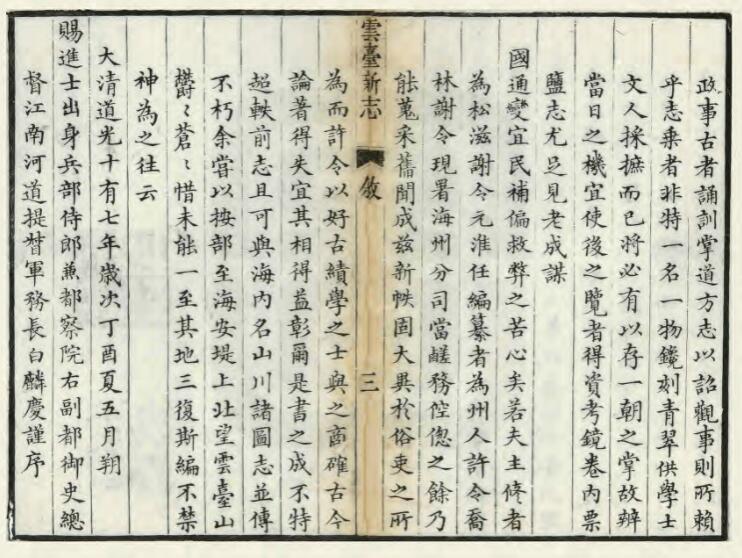 政事古者誦訓掌道方志以詔觀事則所賴
乎志乘者非特一名一物鏤刻青翠供學士
文人採摭而已將必有以存一朝之掌故辨
當日之機宜使後之覽者得資考鏡卷內票
鹽志尤足見老成謀
國通變宜民補偏救弊之苦心矣若夫主修者
為松滋謝令元淮任編纂者為州人許令喬
林謝令現署海州分司當鹺務倥偬之餘乃
能蒐采舊聞成茲新帙固大異於俗吏之所
雲臺新志
敘
三
為而許令以好古績學之士與之商確古今
論著得失宜其相得益彰爾是書之成不特
超軼前志且可與海內名山川諸圖志並傳
不朽余嘗以按部至海安堤上北望雲臺山
欝〻蒼〻惜未能一至其地三復斯編不禁
神為之往云
大清道光十有七年歲次丁酉夏五月朔
賜進士出身兵部侍郎兼都察院右副都御史總
督江南河道提督軍務長白麟慶謹序